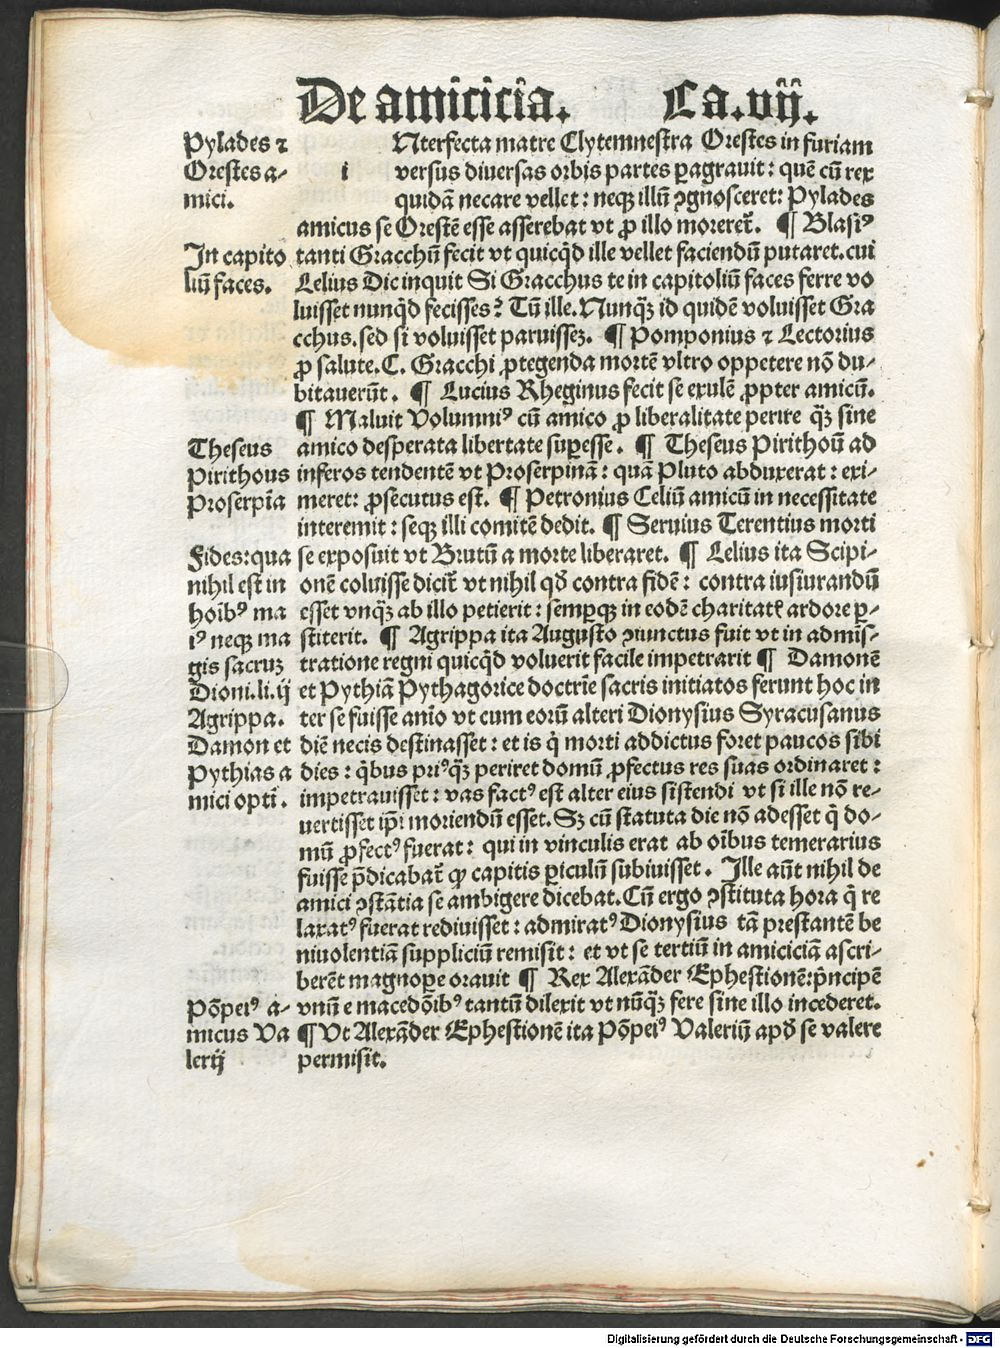 De amicicia. Ca.vij.
Pylades ⁊
Orestes a-
mici.
In capito
liū faces.
Theseus
Pirithous
Proserpīa
Fides:qua
nihil est in
hoībꝰ ma
iꝰ neqꝫ ma
gis sacruꝫ
Dioni.li.ij
Agrippa.
Damon et
Pythias a
mici opti.
Pōpeiꝰ a-
micus Va
lerij
i Nterfecta matre Clytemnestra Orestes in furiam
versus diuersas orbis partes ꝑagrauit: quē cū rex
quidā necare vellet: neqꝫ illū ꝯgnosceret: Pylades
amicus se Orestē esse asserebat vt ꝓ illo moreret̄. ¶ Blasiꝰ
tanti Gracchū fecit vt quicqͥd ille vellet faciendū putaret.cui
Lelius Dic inquit Si Gracchus te in capitoliū faces ferre vo
luisset nunqͥd fecisses? Tū ille.Nunqꝫ̄ id quidē voluisset Gra
cchus.sed si voluisset paruisseꝫ. ¶ Pomponius ⁊ Lectorius
ꝓ salute.C. Gracchi ꝓtegenda mortē vltro oppetere nō du-
bitauerūt. ¶ Lucius Rheginus fecit se exulē ꝓpter amicū.
¶ Maluit Volumniꝰ cū amico ꝓ liberalitate perire qꝫ̄ sine
amico desperata libertate suꝑesse. ¶ Theseus Pirithoū ad
inferos tendentē vt Proserpinā: quā Pluto abduxerat: exi-
meret: ꝓsecutus est. ¶ Petronius Celiū amicū in necessitate
interemit: seqꝫ illi comitē dedit. ¶ Seruius Terentius morti
se exposuit vt Brutū a morte liberaret. ¶ Lelius ita Scipi-
onē coluisse dicit̄ vt nihil qđ contra fidē: contra iusiurandū
esset vnqꝫ̄ ab illo petierit: semꝑqꝫ in eodē charitatꝭ ardore ꝑ-
stiterit. ¶ Agrippa ita Augusto ꝯiunctus fuit vt in admīs-
tratione regni quicqͥd voluerit facile impetrarit ¶ Damonē
et Pythiā Pythagorice doctrīe sacris initiatos ferunt hoc in
ter se fuisse anīo vt cum eorū alteri Dionysius Syracusanus
diē necis destinasset: et is qͥ morti addictus foret paucos sibi
dies: qͥbus priꝰqꝫ̄ periret domū ꝓfectus res suas ordinaret:
impetrauisset: vas factꝰ est alter eius sistendi vt si ille nō re-
uertisset ip̄i moriendū esset.Sꝫ cū statuta die nō adesset qͥ do-
mū ꝓfectꝰ fuerat: qui in vinculis erat ab oībus temerarius
fuisse p̄dicabat̄ ꝙ capitis ꝑiculū subiuisset. Ille aūt nihil de
amici ꝯstātia se ambigere dicebat.Cū ergo ꝯstituta hora qͥ re
laxatꝰ fuerat rediuisset: admiratꝰ Dionysius tā prestantē be
niuolentiā suppliciū remisit: et vt se tertiū in amiciciā ascri-
berēt magnoꝑe orauit ¶ Rex Alexāder Ephestionē:pͥncipē
vnū e macedōibꝰ tantū dilexit vt nūqꝫ̄ fere sine illo incederet.
¶ Vt Alexāder Ephestionē ita Pōpeiꝰ Valeriū apđ se valere
permisit.
Digitalisierung gefördert durch die Deutsche Forschungsgemeinschaft - DFG